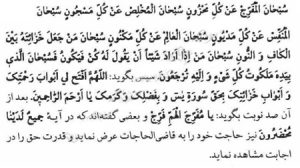 سُبْحَانَ الْمُفَرِّجِ عَنْ كُلِّ مَحْزُونٍ سُبْحَانَ الْمُخَلِّصِ عَنْ كُلِّ مَسْجُونٍ سُبْحَانَ
الْمُنَفِّسِ عَنْ كُلِّ مَدْيُونٍ سُبْحَانَ الْعَالِمِ عَنْ كُلِّ مَكْنُونٍ سُبْحَانَ مَنْ جَعَلَ خَزَائِنَهُ بَيْنَ
الْكَافِ وَ النُّونِ سُبْحَانَ مَنْ إِذَا أَرَادَ شَيْئاً أَنْ يَقُولَ لَهُ كُنْ فَيَكُونُ فَسُبْحَانَ الَّذِي
بِيَدِهِ مَلَكُوتُ كُلِّ شَيْءٍ وَ إِلَيْهِ تُرْجَعُونَ. سپس بگوید: اللَّهُمَّ افْتَحْ لِي أَبْوَابَ رَحْمَتِكَ
وَ أَبْوَابَ خَزَائِنِكَ بِحَقِّ سُورَةِ يَسَ وَ بِفَضْلِكَ وَ كَرَمِكَ يَا أَرْحَمَ الرَّاحِمِينَ. بعد از
آن صد نوبت بگوید: يَا مُفَرِّجَ الْهَمِّ فَرِّجْ و بعضی گفته‌اند که در آیهٔ جَمِيعٌ لَدَيْنَا
مُحْضَرُونَ نیز حاجت خود را به قاضی‌الحاجات عرض نماید و قدرت حق را در
اجابت مشاهده نماید.